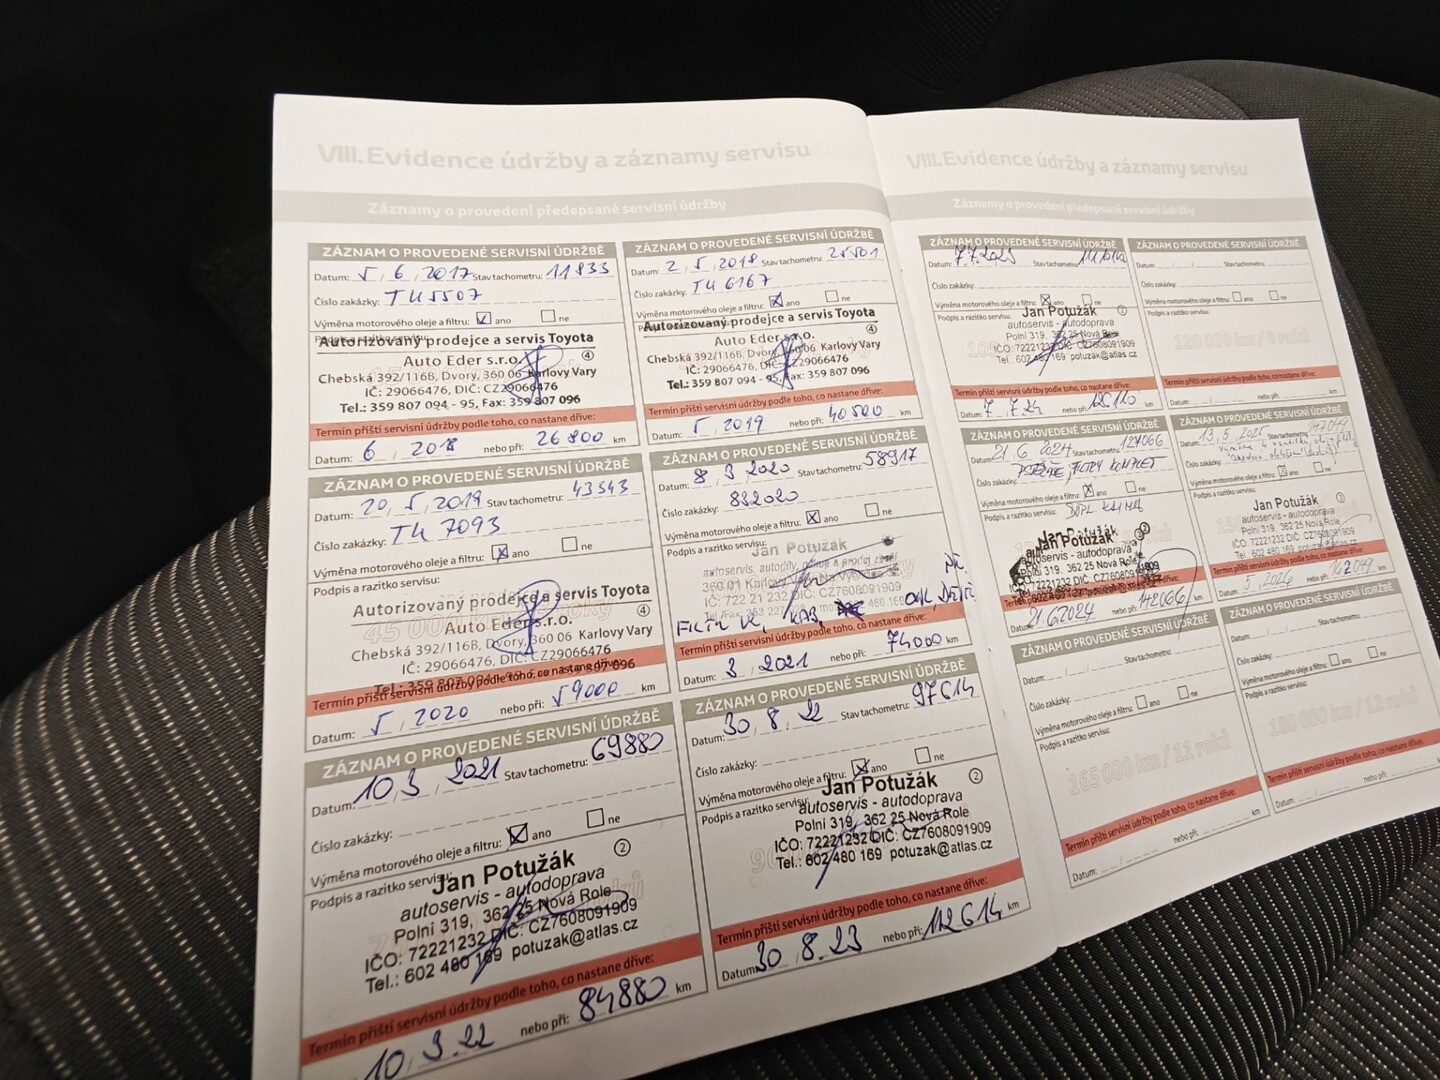 VIII. Evidence údržby a záznamy servisu
Záznamy o provedení předepsané servisní údržby
ZÁZNAM O PROVEDENÉ SERVISNÍ ÚDRŽBĚ
Datum: 5. 6. 2017 Stav tachometru: 11833
Číslo zakázky: TU 5507
Výměna motorového oleje a filtru: ano ne
Podpis a razítko servisu:
Autorizovaný prodejce a servis Toyota
Auto Eder s.r.o. 4
Chebská 392/116B, Dvory, 360 06 Karlovy Vary
IČ: 29066476, DIČ: CZ29066476
Tel.: 359 807 094 - 95, Fax: 359 807 096
Termín příští servisní údržby podle toho, co nastane dříve:
Datum: 6. 2018 nebo při: 26 800 km
ZÁZNAM O PROVEDENÉ SERVISNÍ ÚDRŽBĚ
Datum: 2. 5. 2018 Stav tachometru: 25501
Číslo zakázky: TU 6167
Výměna motorového oleje a filtru: ano ne
Autorizovaný prodejce a servis Toyota
Auto Eder s.r.o. 4
Chebská 392/116B, Dvory, 360 06 Karlovy Vary
IČ: 29066476, DIČ: CZ29066476
Tel.: 359 807 094 - 95, Fax: 359 807 096
Termín příští servisní údržby podle toho, co nastane dříve:
Datum: 5. 2019 nebo při: 40 500 km
ZÁZNAM O PROVEDENÉ SERVISNÍ ÚDRŽBĚ
Datum: 20. 5. 2019 Stav tachometru: 43543
Číslo zakázky: TU 7093
Výměna motorového oleje a filtru: ano ne
Podpis a razítko servisu:
Autorizovaný prodejce a servis Toyota
Auto Eder s.r.o. 4
Chebská 392/116B, Dvory, 360 06 Karlovy Vary
IČ: 29066476, DIČ: CZ29066476
Tel.: 359 807 094 - 95, Fax: 359 807 096
Termín příští servisní údržby podle toho, co nastane dříve:
Datum: 5. 2020 nebo při: 59000 km
ZÁZNAM O PROVEDENÉ SERVISNÍ ÚDRŽBĚ
Datum: 8. 3. 2020 Stav tachometru: 58917
Číslo zakázky: 832020
Výměna motorového oleje a filtru: ano ne
Podpis a razítko servisu:
Jan Potužák
IČ: 722 21 232 DIČ: CZ7608091909
Termín příští servisní údržby podle toho, co nastane dříve:
Datum: 3. 2021 nebo při: 74000 km
ZÁZNAM O PROVEDENÉ SERVISNÍ ÚDRŽBĚ
Datum: 10. 3. 2021 Stav tachometru: 69880
Číslo zakázky:
Výměna motorového oleje a filtru: ano ne
Podpis a razítko servisu:
Jan Potužák 2
autoservis - autodoprava
Polní 319, 362 25 Nová Role
IČO: 72221232 DIČ: CZ7608091909
Tel.: 602 480 169 potuzak@atlas.cz
Termín příští servisní údržby podle toho, co nastane dříve:
10. 3. 22 nebo při: 84880 km
ZÁZNAM O PROVEDENÉ SERVISNÍ ÚDRŽBĚ
Datum: 30. 8. 22 Stav tachometru: 97614
Číslo zakázky:
Výměna motorového oleje a filtru: ano ne
Podpis a razítko servisu:
Jan Potužák 2
autoservis - autodoprava
Polní 319, 362 25 Nová Role
IČO: 72221232 DIČ: CZ7608091909
Tel.: 602 480 169 potuzak@atlas.cz
Termín příští servisní údržby podle toho, co nastane dříve:
Datum: 30. 8. 23 nebo při: 112614 km
VIII. Evidence údržby a záznamy servisu
Záznamy o provedení předepsané servisní údržby
ZÁZNAM O PROVEDENÉ SERVISNÍ ÚDRŽBĚ
Datum: Stav tachometru:
Číslo zakázky:
Výměna motorového oleje a filtru: ano ne
Podpis a razítko servisu:
Jan Potužák 2
autoservis - autodoprava
Polní 319, 362 25 Nová Role
IČO: 72221232 DIČ: CZ7608091909
Tel.: 602 480 169 potuzak@atlas.cz
Termín příští servisní údržby podle toho, co nastane dříve:
Datum: 7. 7. 24 nebo při: km
ZÁZNAM O PROVEDENÉ SERVISNÍ ÚDRŽBĚ
Datum: Stav tachometru:
Číslo zakázky:
Výměna motorového oleje a filtru: ano ne
Podpis a razítko servisu:
120 000 km / 8 roků
Termín příští servisní údržby podle toho, co nastane dříve:
Datum: nebo při: km
ZÁZNAM O PROVEDENÉ SERVISNÍ ÚDRŽBĚ
Datum: 21. 6. 2024 Stav tachometru: 127066
Číslo zakázky: FILTRY KOMPLET
Výměna motorového oleje a filtru: ano ne
Podpis a razítko servisu:
Jan Potužák
autoservis - autodoprava
Polní 319, 362 25 Nová Role
Termín příští servisní údržby podle toho, co nastane dříve:
Datum: nebo při: 142066 km
ZÁZNAM O PROVEDENÉ SERVISNÍ ÚDRŽBĚ
Datum: 13. 5. 2025 Stav tachometru:
Číslo zakázky:
Výměna motorového oleje a filtru: ano ne
Podpis a razítko servisu:
Jan Potužák 3
autoservis - autodoprava
Polní 319, 362 25 Nová Role
IČO: 72221232 DIČ: CZ7608091909
Tel.: 602 480 169
Termín příští servisní údržby podle toho, co nastane dříve:
Datum: 5. 2026 nebo při: km
ZÁZNAM O PROVEDENÉ SERVISNÍ ÚDRŽBĚ
Datum: Stav tachometru:
Číslo zakázky:
Výměna motorového oleje a filtru: ano ne
Podpis a razítko servisu:
165 000 km / 11 roků
Termín příští servisní údržby podle toho, co nastane dříve:
Datum: nebo při: km
ZÁZNAM O PROVEDENÉ SERVISNÍ ÚDRŽBĚ
Datum: Stav tachometru:
Číslo zakázky:
Výměna motorového oleje a filtru: ano ne
Podpis a razítko servisu:
180 000 km / 12 roků
Termín příští servisní údržby podle toho, co nastane dříve:
Datum: nebo při: km